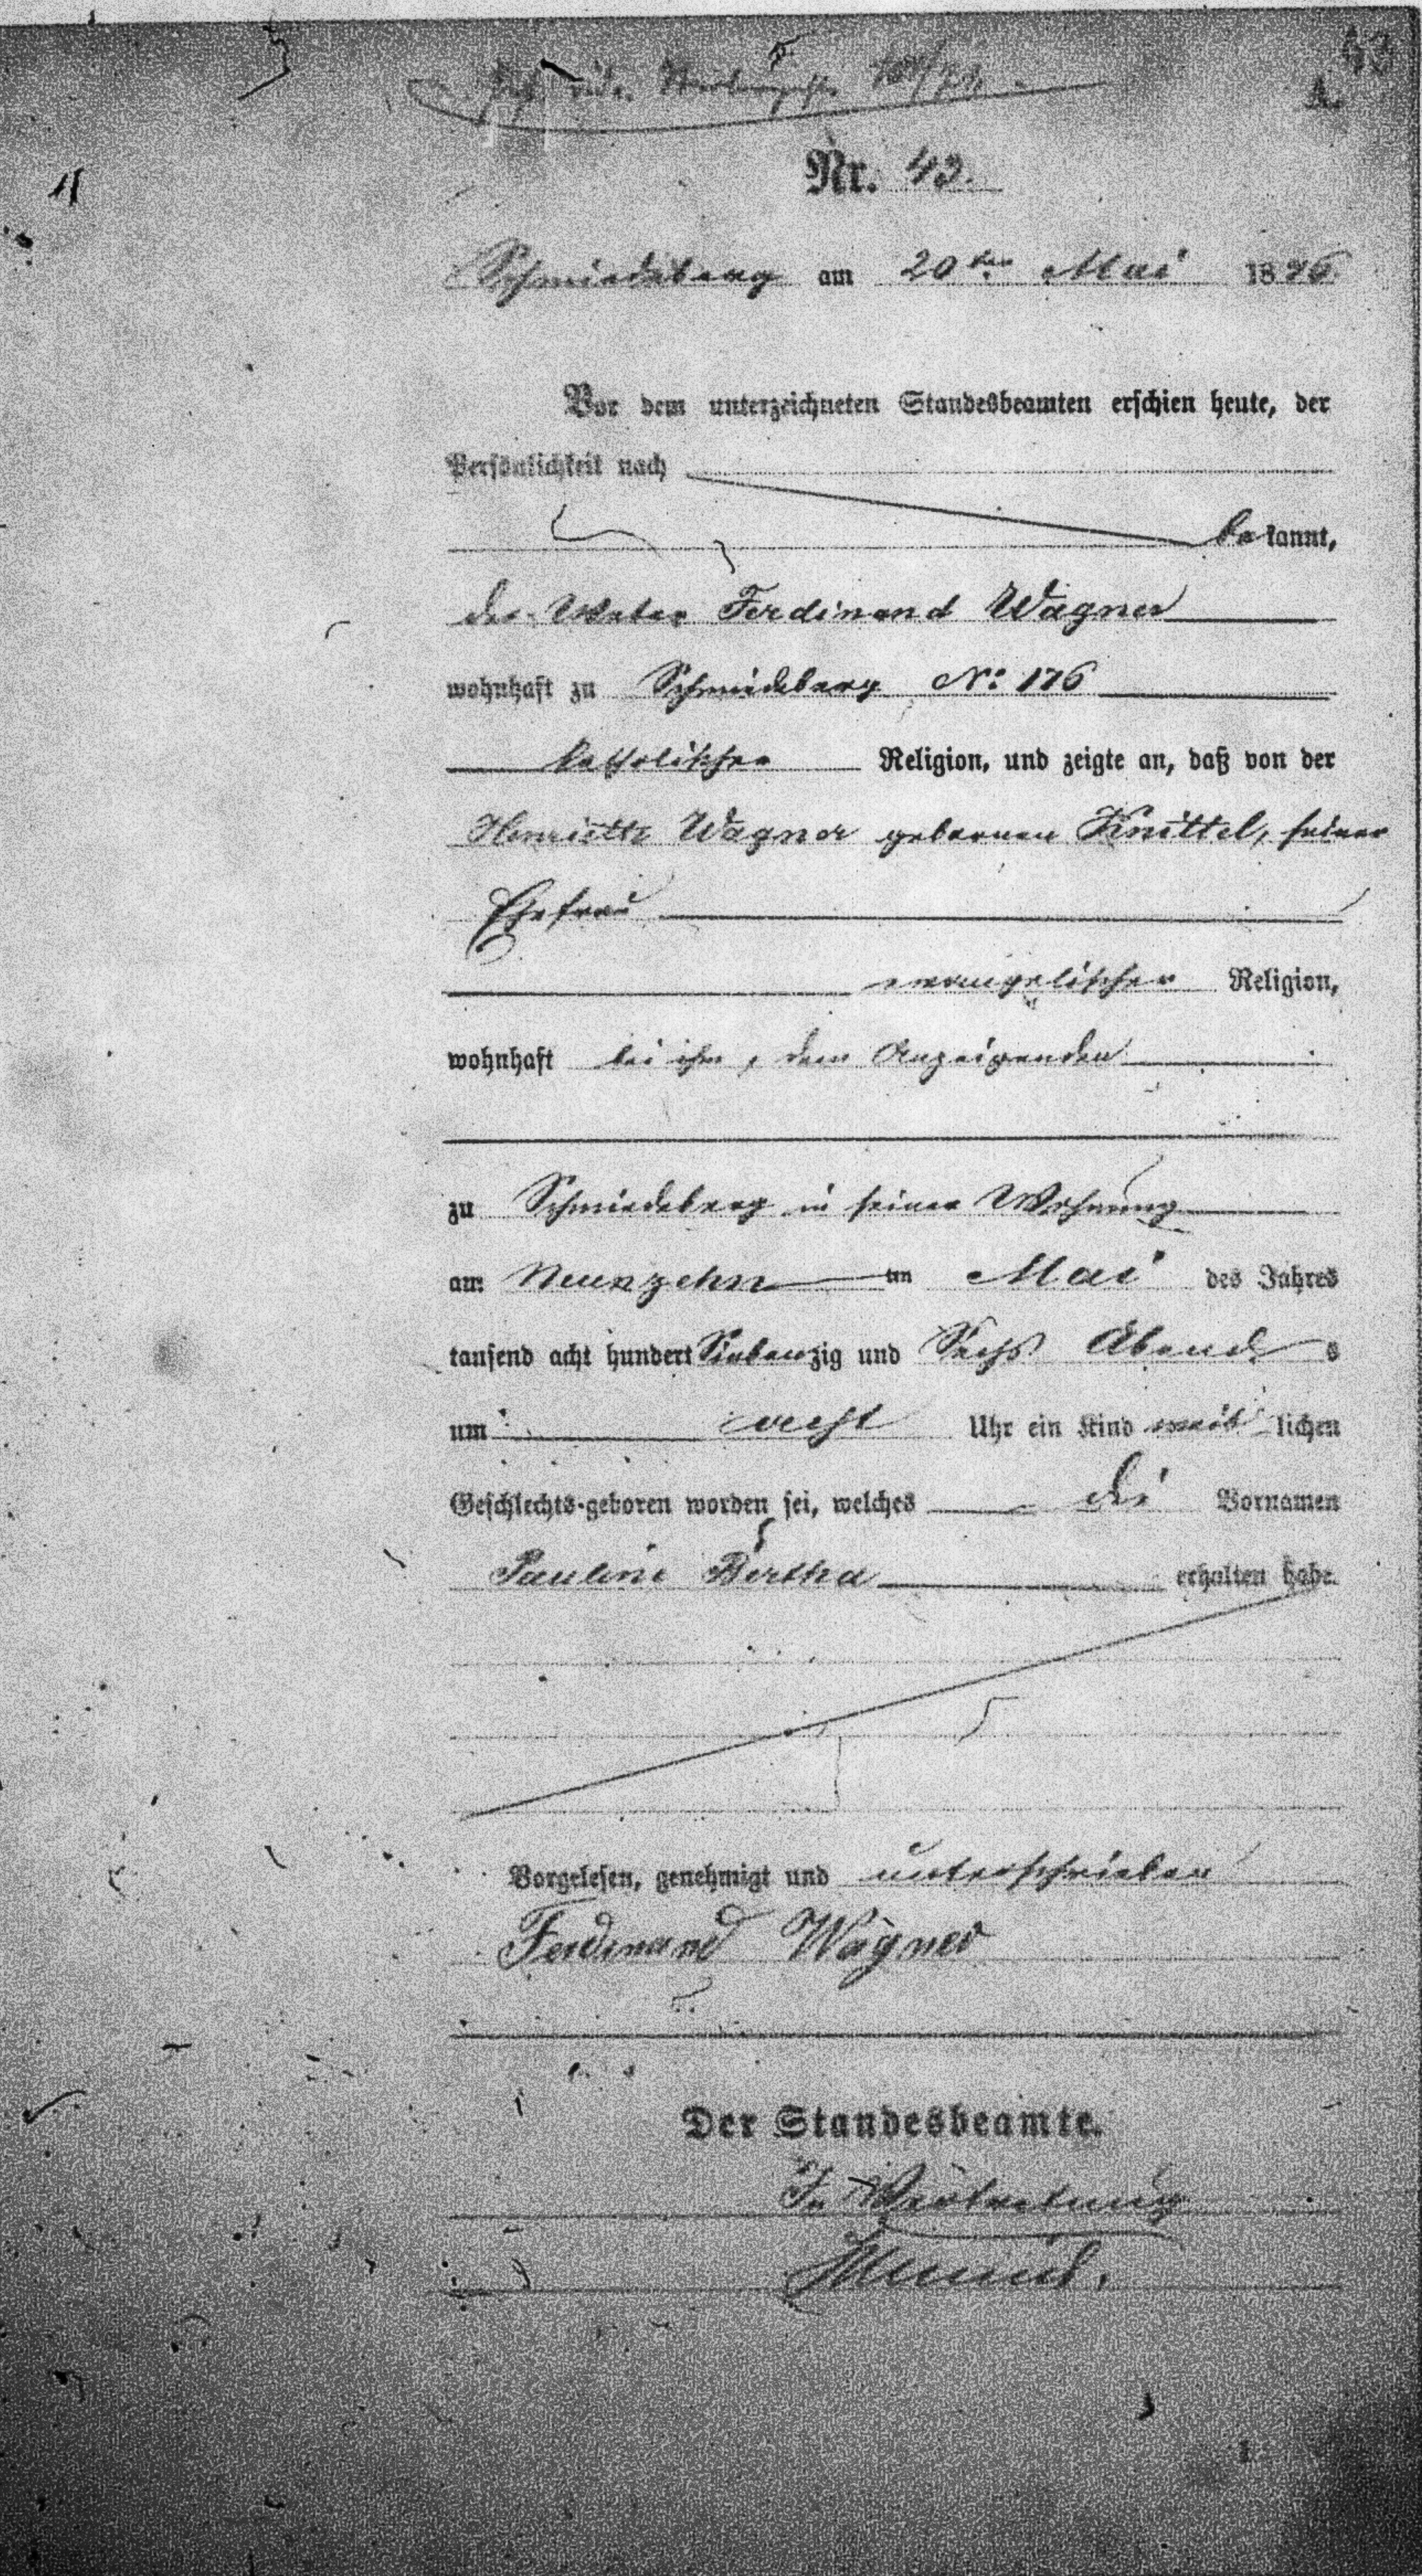 Nr. 43.
Schmiedeberg am 20ten Mai 1876
Vor dem unterzeichneten Standesbeamten erschien heute, der
Persönlichkeit nach
bekannt,
der Weber Ferdinand Wagner
wohnhaft zu Schmiedeberg No: 176
katholischer Religion, und zeigte an, daß von der
Henriette Wagner gebornen Knittel, seiner
Ehefrau
evangelischer Religion,
wohnhaft bei ihm, dem Anzeigenden
zu Schmiedeberg in seiner Wohnung
am Neunzehn ten Mai des Jahres
tausend acht hundert Siebenzig und Sechs Abends
um acht Uhr ein Kind weiblichen
Geschlechts geboren worden sei, welches die Vornamen
Pauline Bertha erhalten habe.
Vorgelesen, genehmigt und unterschrieben
Ferdinand Wagner
Der Standesbeamte.
In Vertretung